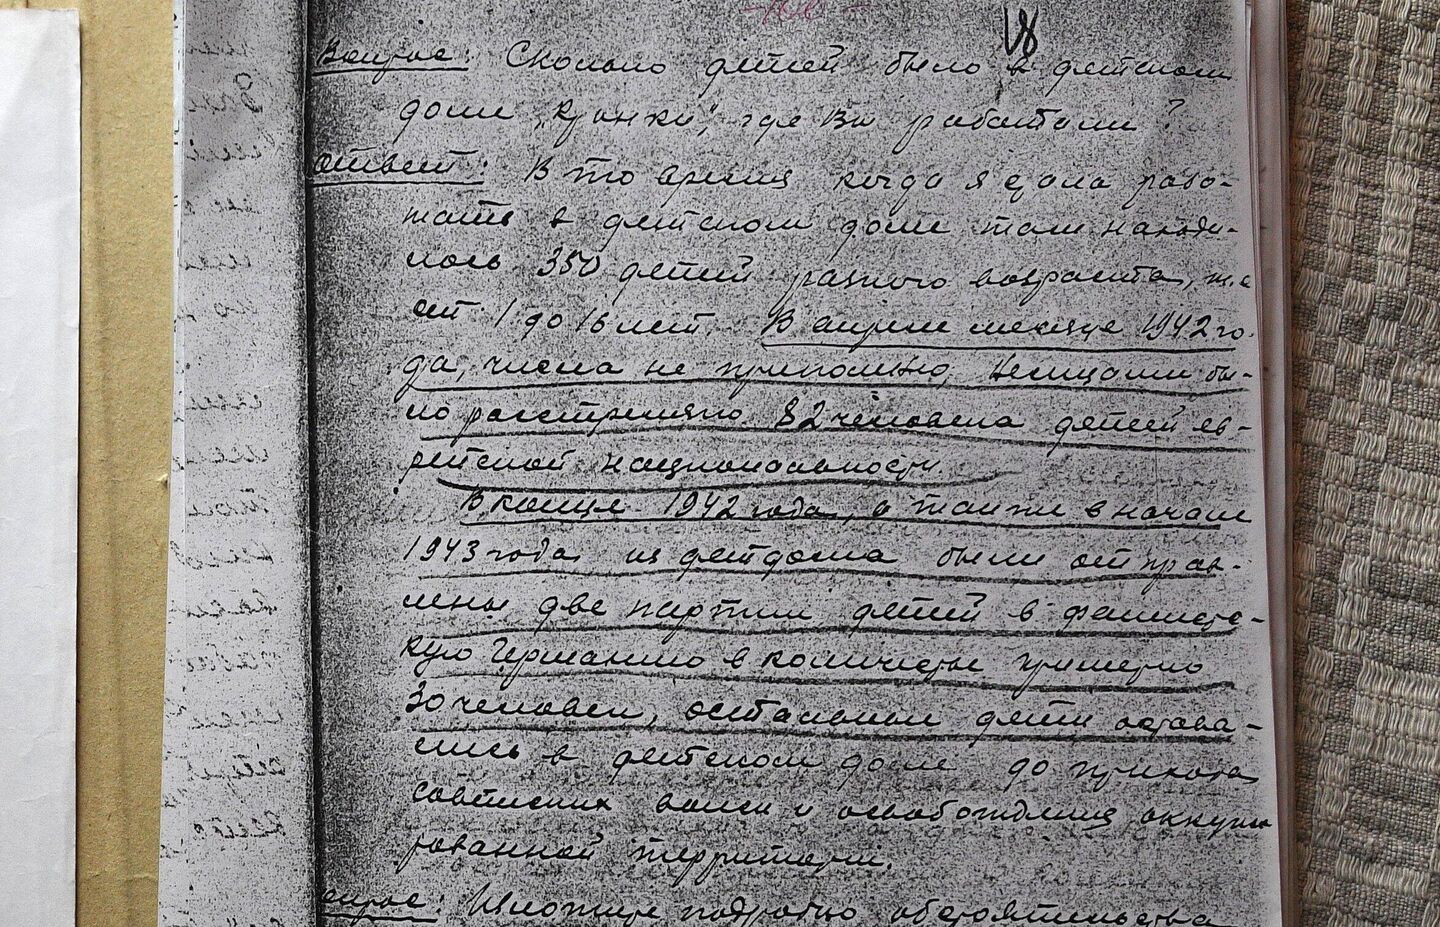 18
Вопрос: Сколько детей было в детском
доме „Крынки", где Вы работали?
Ответ: В то время когда я стала рабо-
тать в детском доме там находи-
лось 350 детей разного возраста,
от 1 до 16 лет. В апреле месяце 1942 го-
да, числа не припомню, немцами бы-
ло расстреляно 82 человека детей ев-
рейской национальности.
В конце 1942 года, а также в начале
1943 года из детдома были отправ-
лены две партии детей в фашистс-
кую Германию в количестве примерно
30 человек, остальные дети остава-
лись в детском доме до прихода
советских войск и освобождения оккупи
рованной территории.
Вопрос: Изложите подробно обстоятельства